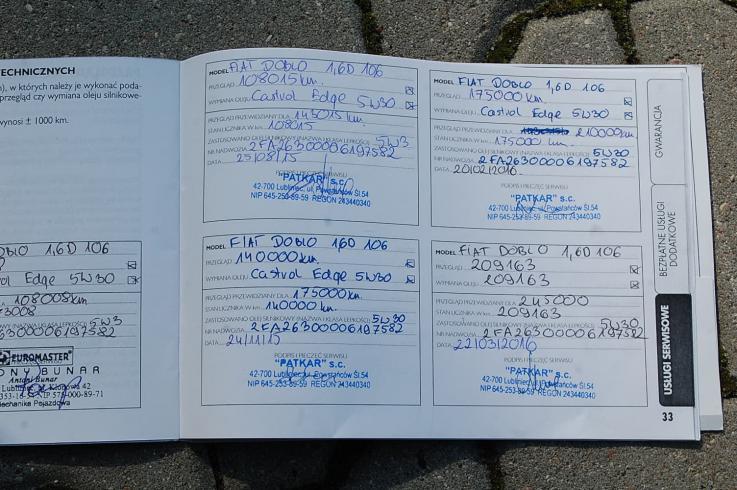 TECHNICZNYCH
), w których należy je wykonać poda-
przegląd czy wymiana oleju silnikowe-
wynosi ± 1000 km.
OBLO 1,6D 106
Edge 5W30
108008km
73008
5W3
6300006197582
EUROMASTER
ONY BUNAR
Antoni Bunar
Lubliniec 42
353-16-5 NIP 575-000-89-71
Mechanika Pojazdowa
MODEL FIAT DOBLO 1,6D 106
PRZEGLĄD 108015km.
WYMIANA OLEJU Castrol Edge 5W30
PRZEGLĄD PRZEWIDZIANY DLA 143015km
STAN LICZNIKA W km 108015
ZASTOSOWANO OLEJ SILNIKOWY (NAZWA I KLASA LEPKOŚCI) 5W3
NR NADWOZIA 2FA26300006197582
DATA 25/08/15
PODPIS I PIECZĘĆ SERWISU
"PATKAR" s.c.
42-700 Lubliniec, ul. Powstańców Śl.54
NIP 645-253-89-59 REGON 243440340
MODEL FIAT DOBLO 160 106
PRZEGLĄD 140000km.
WYMIANA OLEJU Castrol Edge 5W30
PRZEGLĄD PRZEWIDZIANY DLA 175000km.
STAN LICZNIKA W km 140000km
ZASTOSOWANO OLEJ SILNIKOWY (NAZWA I KLASA LEPKOŚCI) 5W30
NR NADWOZIA 2FA26300006197582
DATA 24/11/15
PODPIS I PIECZĘĆ SERWISU
"PATKAR" s.c.
42-700 Lubliniec, ul. Powstańców Śl.54
NIP 645-253-89-59 REGON 243440340
MODEL FIAT DOBLO 1,6D 106
PRZEGLĄD 175000km.
WYMIANA OLEJU Castrol Edge 5W30
PRZEGLĄD PRZEWIDZIANY DLA 210000km
STAN LICZNIKA W km 175000 km.
ZASTOSOWANO OLEJ SILNIKOWY (NAZWA I KLASA LEPKOŚCI) 5W30
NR NADWOZIA 2FA26300006197582
DATA 20/02/2016.
PODPIS I PIECZĘĆ SERWISU
"PATKAR" s.c.
42-700 Lubliniec, ul. Powstańców Śl.54
NIP 645-253-89-59 REGON 243440340
MODEL FIAT DOBLO 1,6D 106
PRZEGLĄD 209163
WYMIANA OLEJU 209163
PRZEGLĄD PRZEWIDZIANY DLA 245000
STAN LICZNIKA W km 209163
ZASTOSOWANO OLEJ SILNIKOWY (NAZWA I KLASA LEPKOŚCI) 5W30
NR NADWOZIA 2FA26300006197582
DATA 22/03/2016
PODPIS I PIECZĘĆ SERWISU
"PATKAR" s.c.
42-700 Lubliniec, ul. Powstańców Śl.54
NIP 645-253-89-59 REGON 243440340
GWARANCJA
BEZPŁATNE USŁUGI
DODATKOWE
USŁUGI SERWISOWE
33